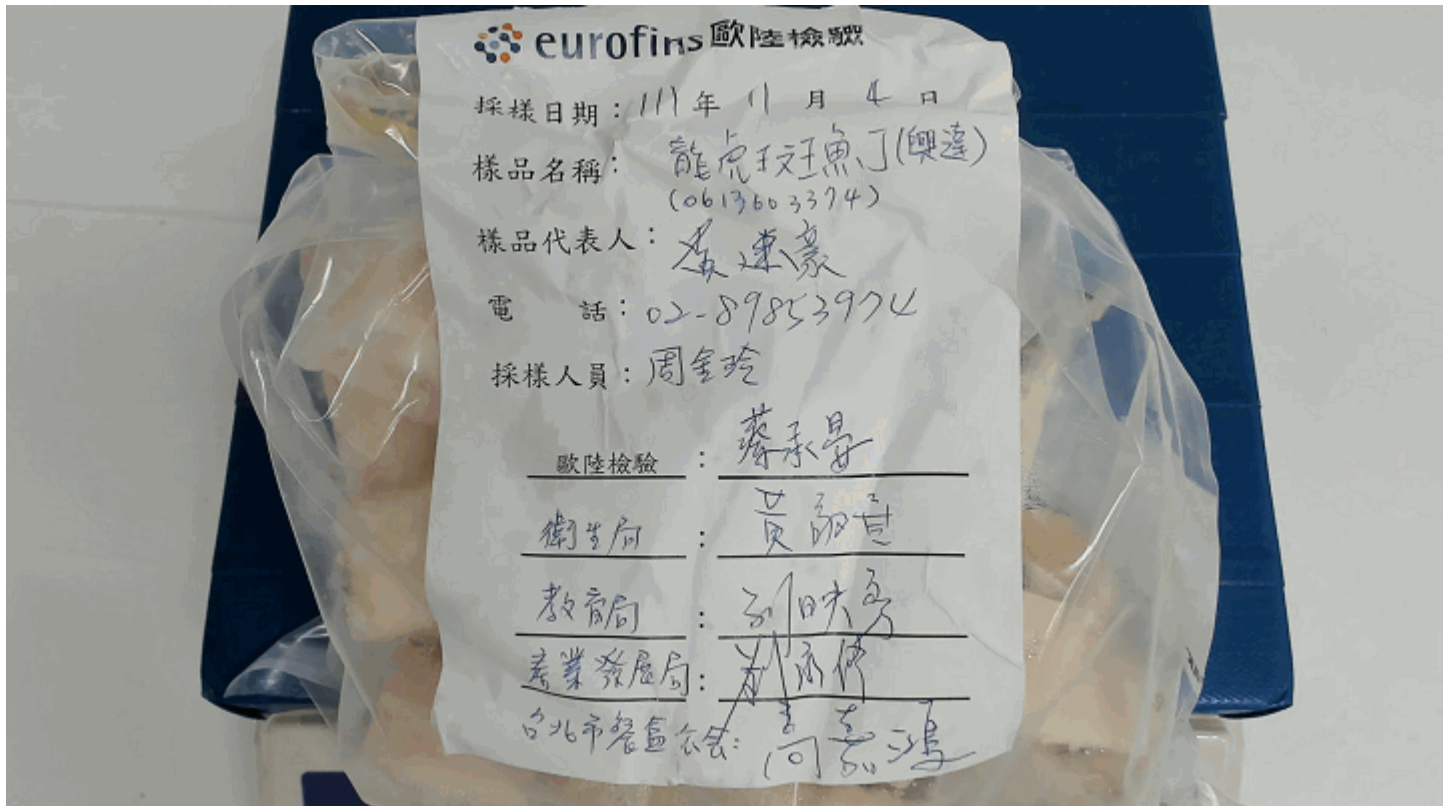 eurofins 歐陸檢驗
採樣日期：111年 11月 4日
樣品名稱：龍虎斑魚丁(興達)
(0613603374)
樣品代表人：黃建豪
電話：02-89853974
採樣人員：周金玲
歐陸檢驗：蔡承晏
衛生局：黃
教育局：劉映
產業發展局：劉
台北市餐盒公會：高嘉鴻